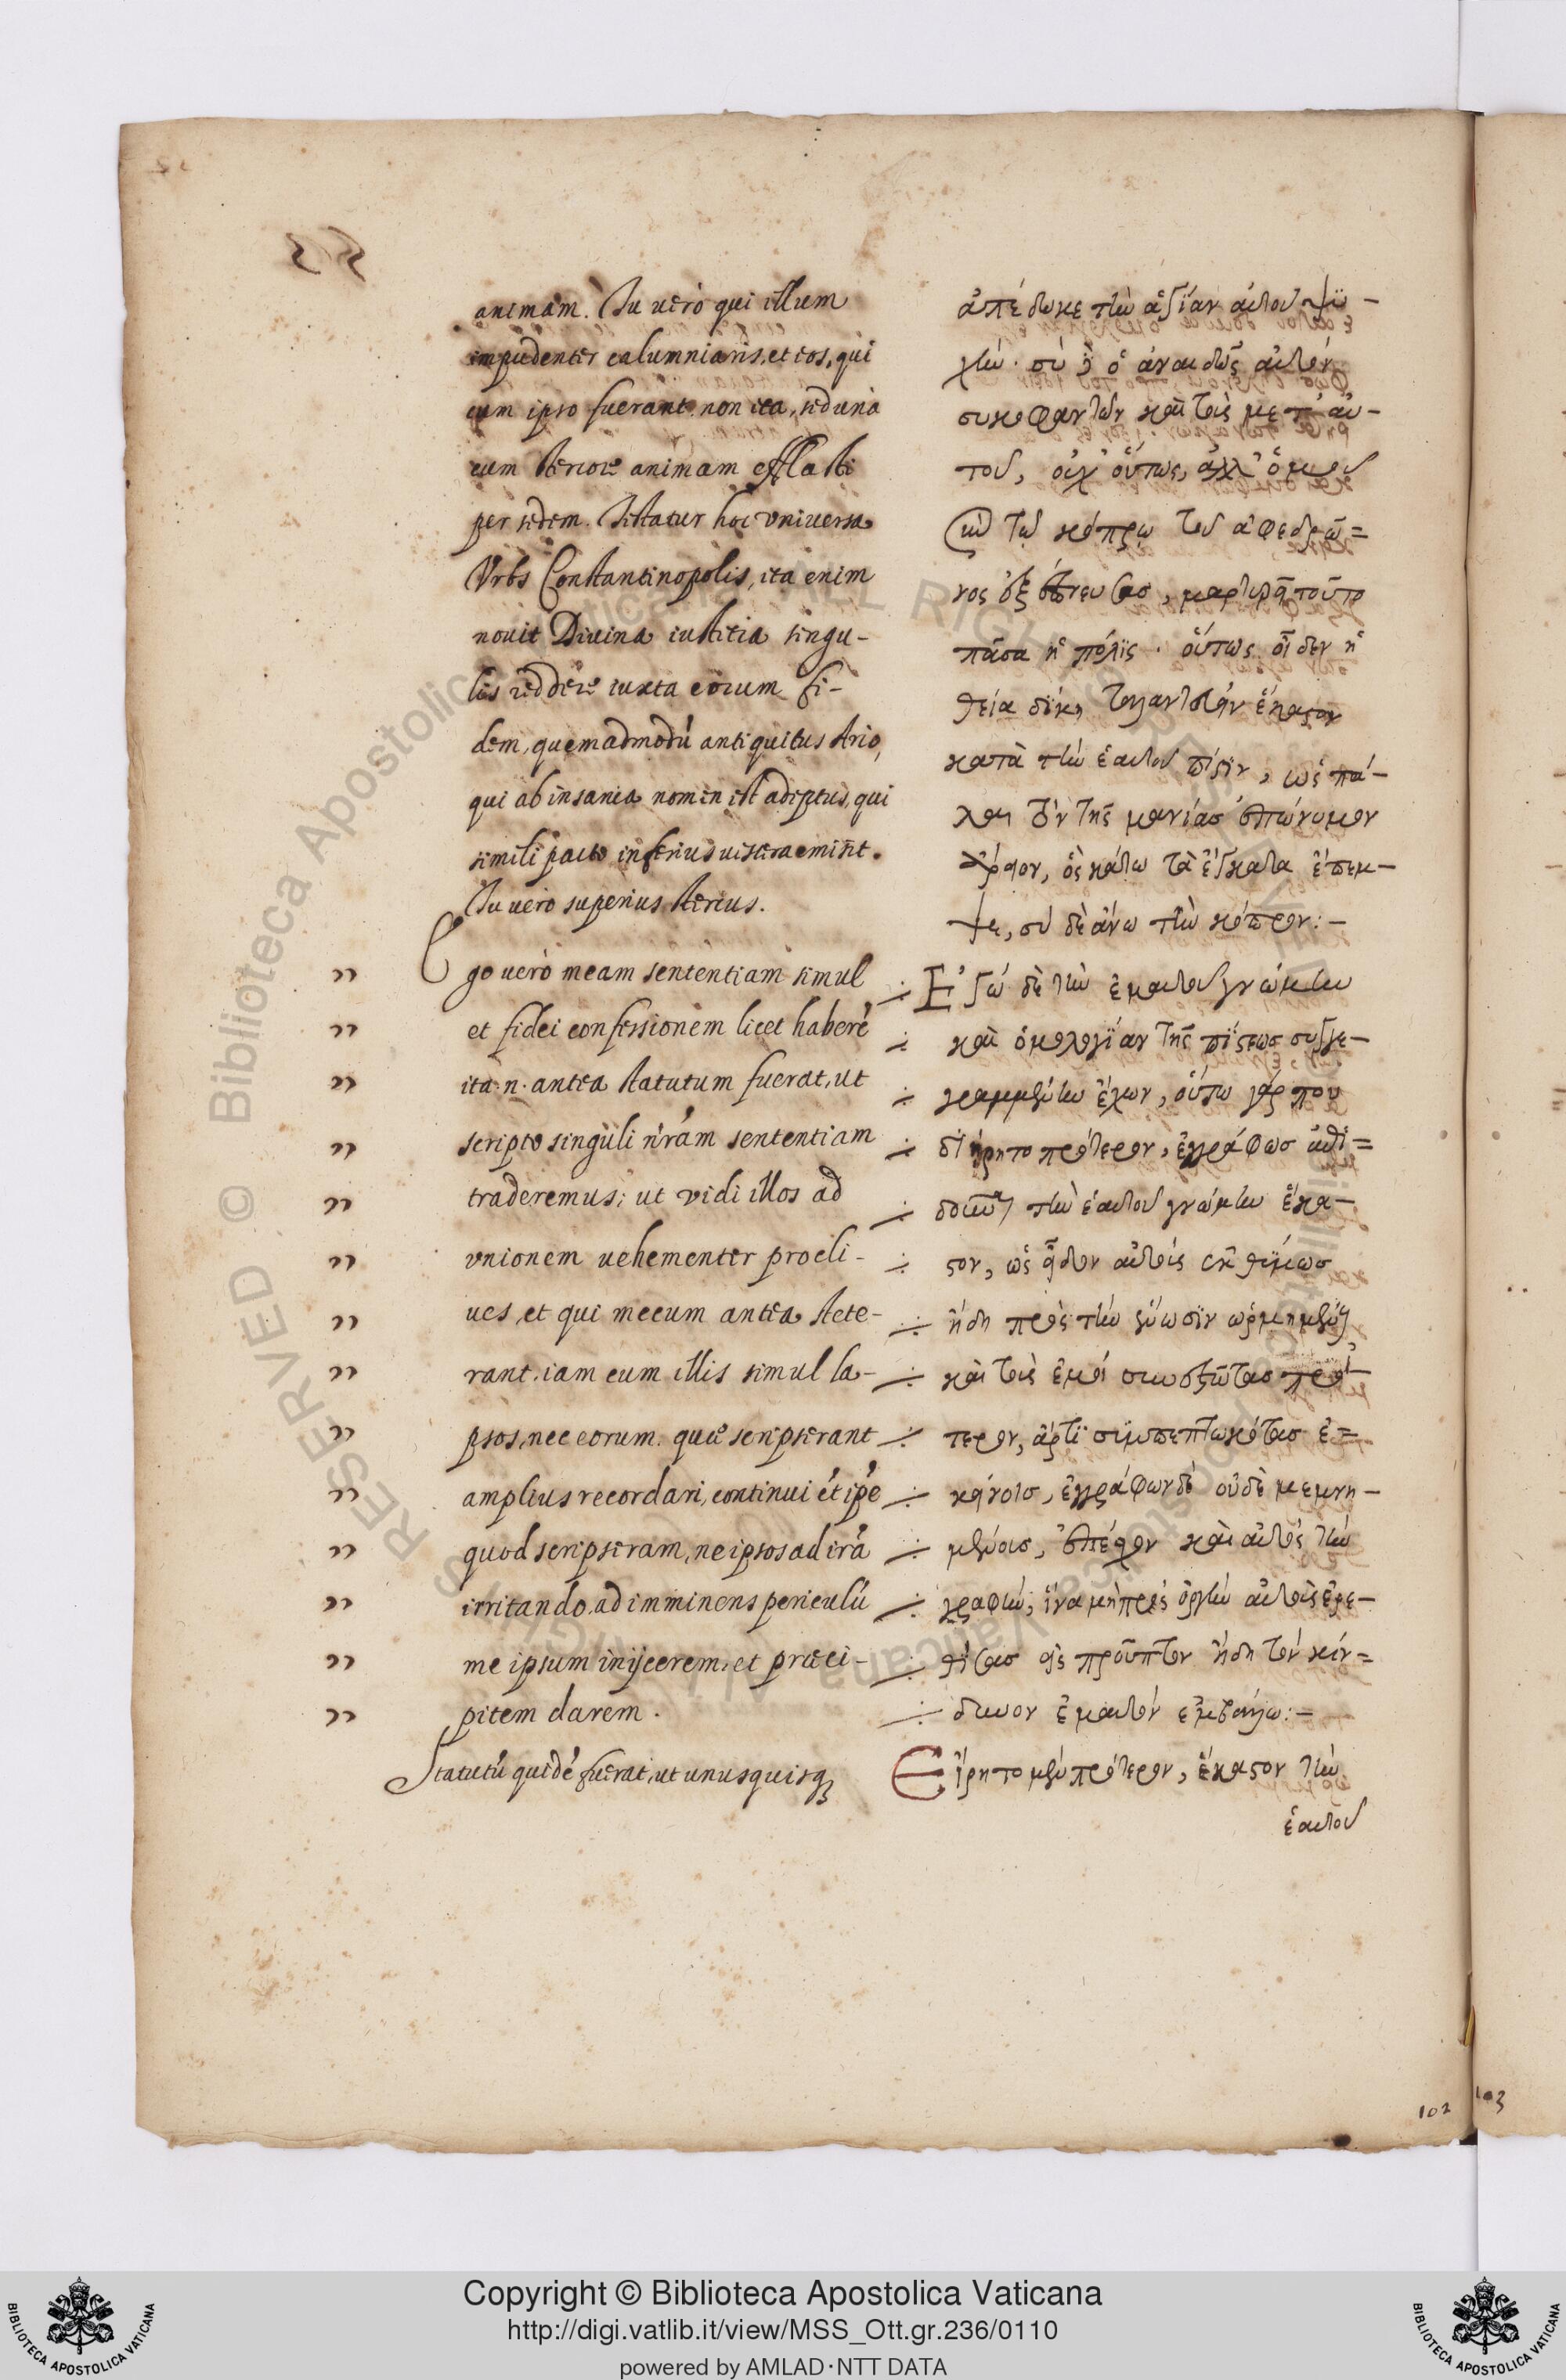 animam. Tu uerò qui illum
impudenter calumniaris, et eos, qui
cum ipso fuerant non ita, sed unà
cum stercore animam efflasti
per sedem. Testatur hoc vniuersa
Vrbs Constantinopolis, ita enim
nouit Diuina iustitia singu-
lis reddere iuxta eorum fi-
dem, quemadmodũ antiquitus Ario,
qui ab insania nomen est adeptus, qui
simili pacto inferius uiscera emisit.
Tu uero superius stercus.
Ego uerò meam sententiam simul
et fidei confessionem licet haberẽ
ita. n. antea statutum fuerat, ut
scripto singuli nr̃am sententiam
traderemus; ut vidi illos ad
vnionem uehementer procli-
ues, et qui mecum antea stete-
rant, iam cum illis simul la-
psos, nec eorum. quæ scripserant
amplius recordari, continui et ip̃e
quod scripseram, ne ipsos ad irã
irritando, ad imminens periculũ
me ipsum inijcerem, et præci-
pitem darem.
Statutũ quidẽ fuerat, ut unusquisq
ἀπέδωκε τὴν ἀξίαν αὐτοῦ ψυ-
χήν. σὺ δὲ ὁ ἀναιδῶς αὐτὸν
συκοφαντῶν καὶ τοὺς μετ' αὐ-
τοῦ, οὐχ' οὕτως, ἀλλ' ὁμοῦ
σὺν τῷ κόπρῳ τοῦ ἀφεδρῶ=
νος
πᾶσα ἡ πόλις. οὕτως οἶδεν ἡ
θεία δίκη ταλαντεύειν ἕκαστον
κατὰ τὴν ἑαυτοῦ πίστιν, ὡς πά-
λαι τὸν τῆς μανίας ἐπώνυμον
Ἄρειον, ὃς κάτω τὰ ἔγκατα ἔπεμ-
ψε, σὺ δὲ ἄνω τὴν κόπρον:-
Ἐγὼ δὲ τὴν ἐμαυτοῦ γνώμην
καὶ ὁμολογίαν τῆς πίστεως συγγε-
γραμμένην ἔχων, οὕτω γάρ που
διῄρητο πρότερον, ἐγγράφως
τὴν ἑαυτοῦ γνώμην ἕκα-
στον, ὡς εἶδον αὐτοὺς ἐκθύμως
ἤδη πρὸς τὴν ἕνωσιν ὡρμημένους
καὶ τοὺς ἐμοὶ συνεστῶτας πρό-
τερον, ἄρτι συμπεπτωκότας ἐ=
κείνοις, ἐγγράφων δὲ οὐδὲ μεμνη-
μένους, ἐπέσχον καὶ αὐτὸς τὴν
γραφήν, ἵνα μὴ πρὸς ὀργὴν αὐτοὺς ἐρε-
θίσας εἰς προὖπτον ἤδη τὸν κίν=
δυνον ἐμαυτὸν ἐμβάλω:-
Εἴρητο μὲν πρότερον, ἕκαστον τὴν
ἑαυτοῦ
102
103
Copyright © Biblioteca Apostolica Vaticana
http://digi.vatlib.it/view/MSS_Ott.gr.236/0110
powered by AMLAD·NTT DATA
BIBLIOTECA APOSTOLICA VATICANA
BIBLIOTECA APOSTOLICA VATICANA